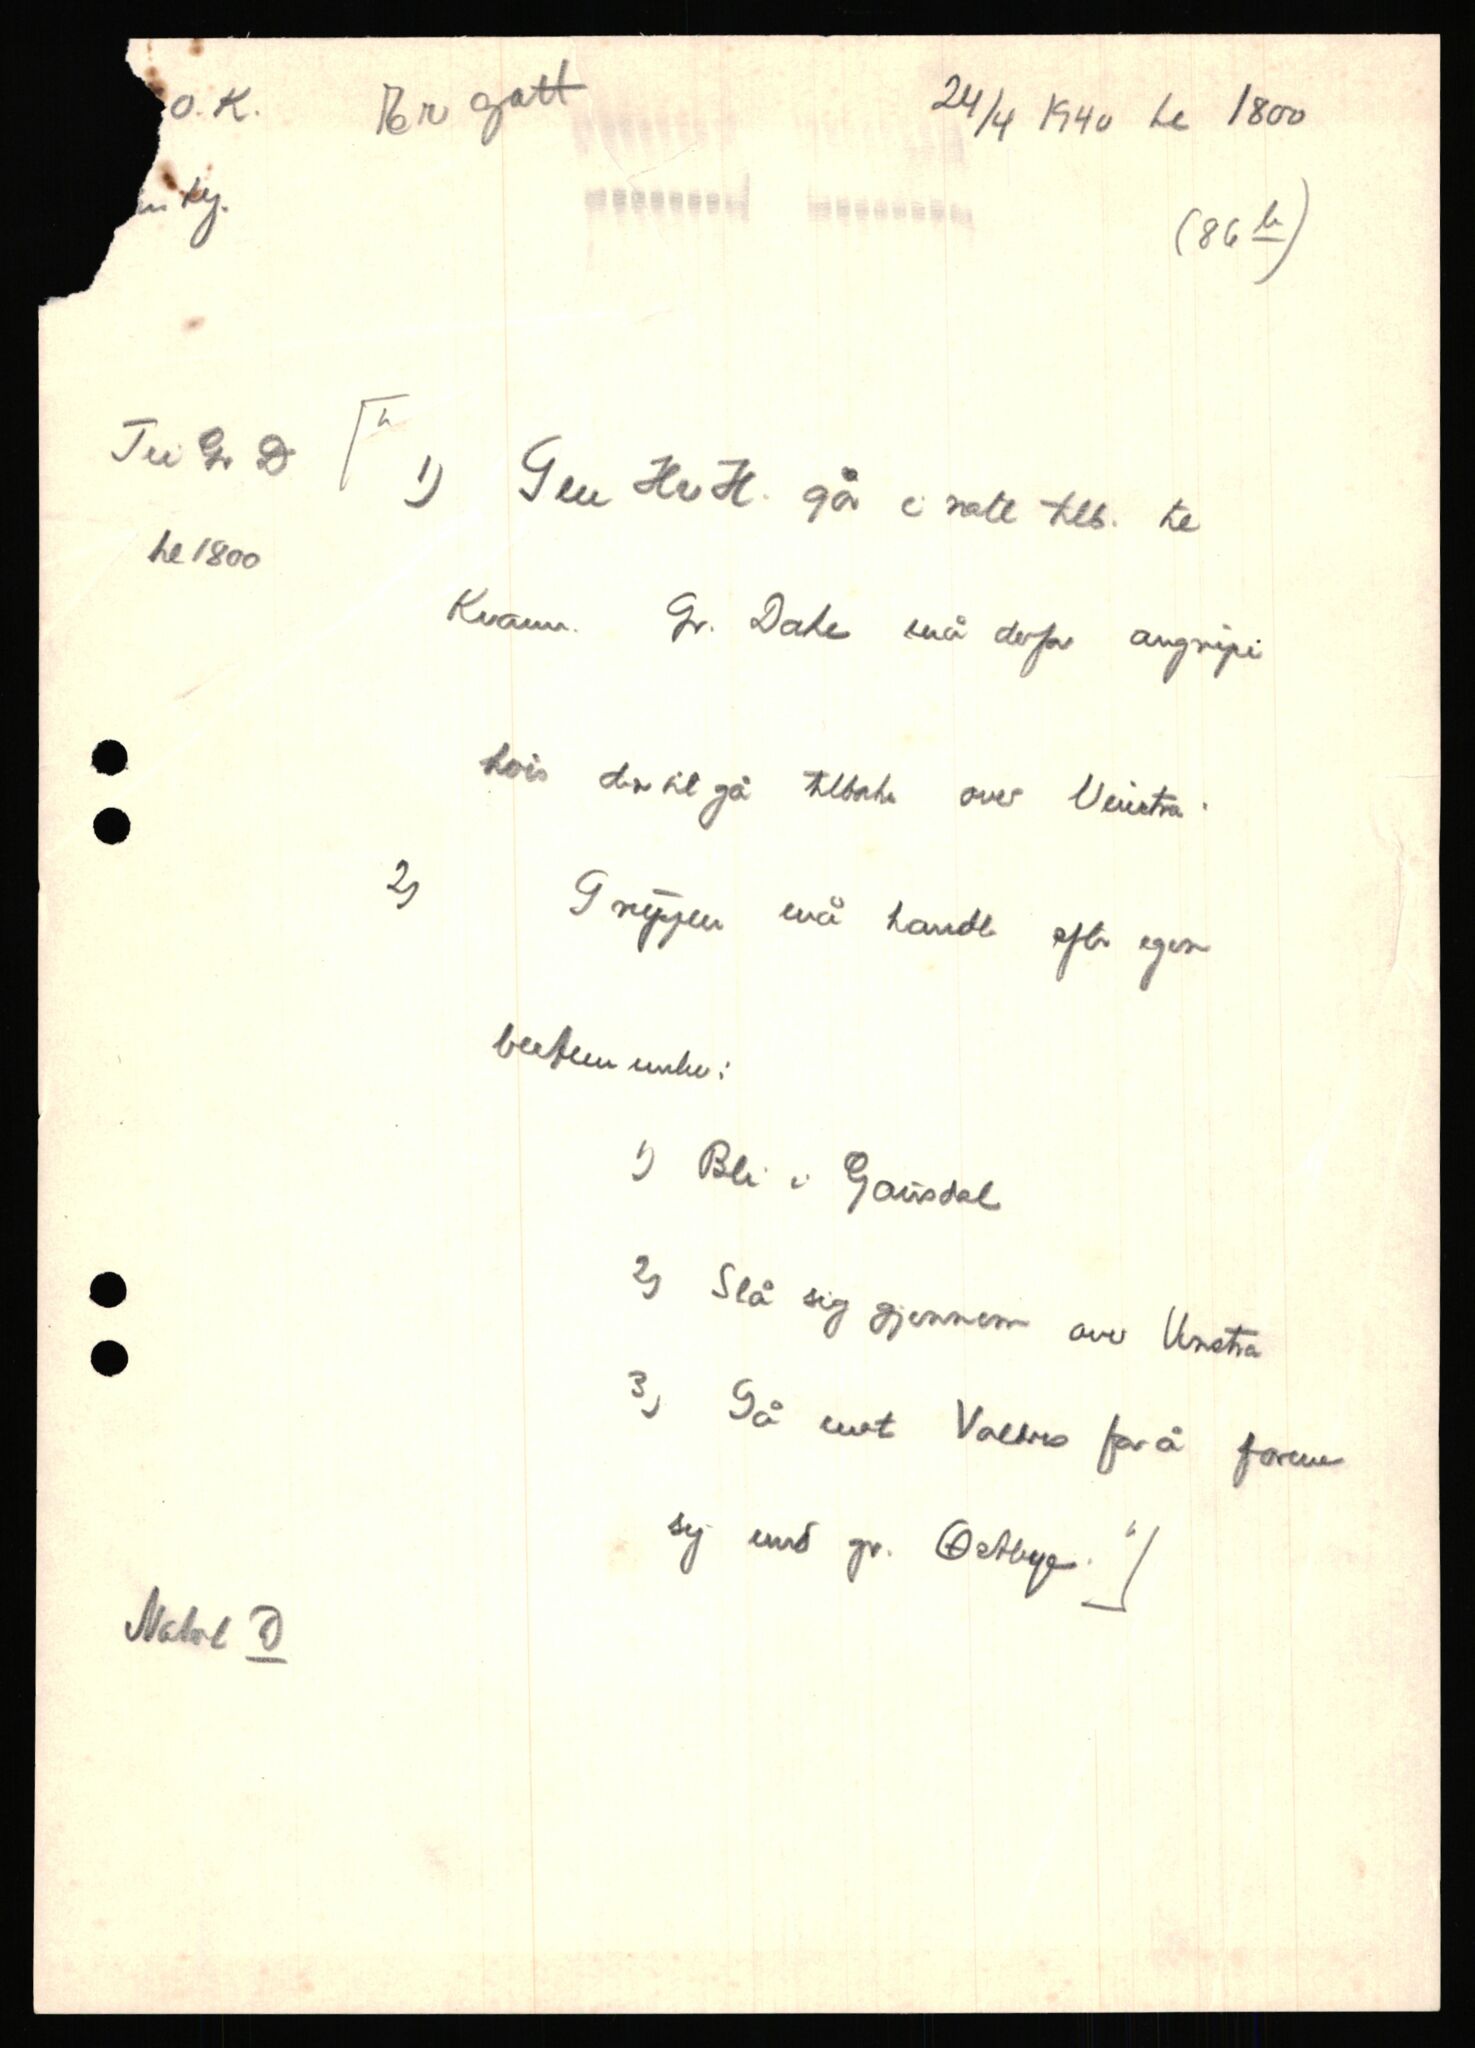 O.K. Per gatt 24/4 1940 kl 1800
(86 b)
Til Gr D
1) Gen Hv H. går i natt tilb. til
kl 1800
Kvam. Gr. Dahl må derfor angripe
hvis den vil gå tilbake over Vinstra.
2) Gruppen må handle efter egen
bestemmelse:
1) Bli i Gausdal
2) Slå sig gjennem over Vinstra
3) Gå mot Valdres for å forene
sig med gr. Østbye.
D